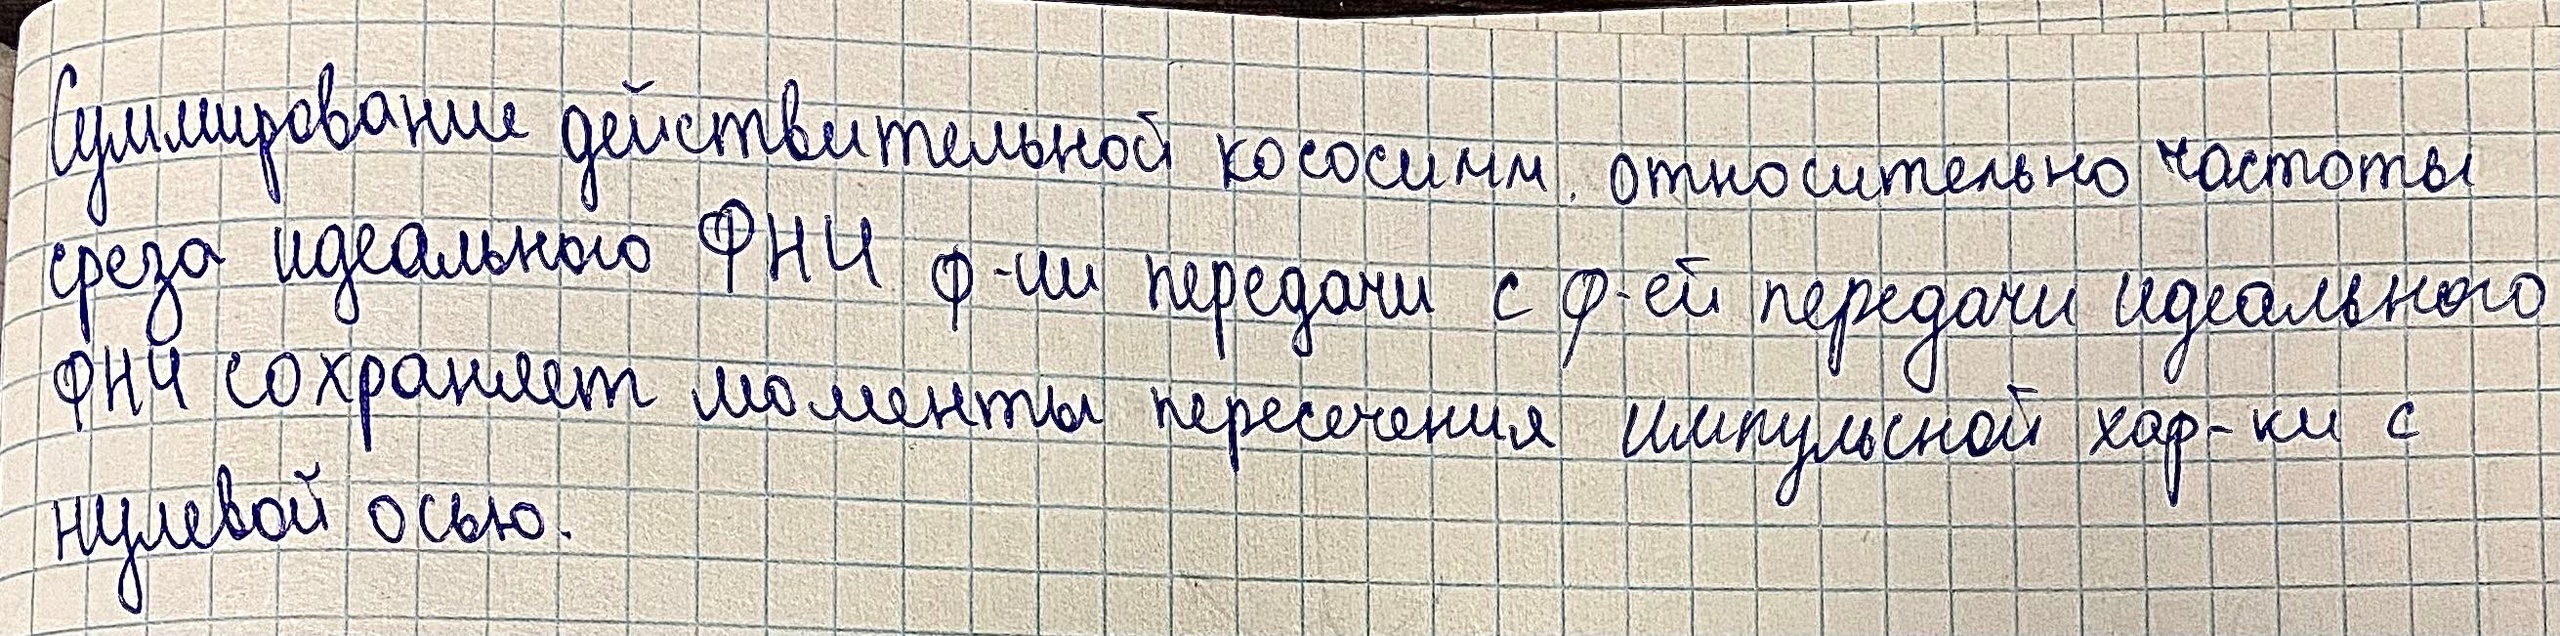 Суммирование действительной кососимм. относительно частоты
среза идеального ФНЧ ф-ии передачи с ф-ей передачи идеального
ФНЧ сохраняет моменты пересечения импульсной хар-ки с
нулевой осью.